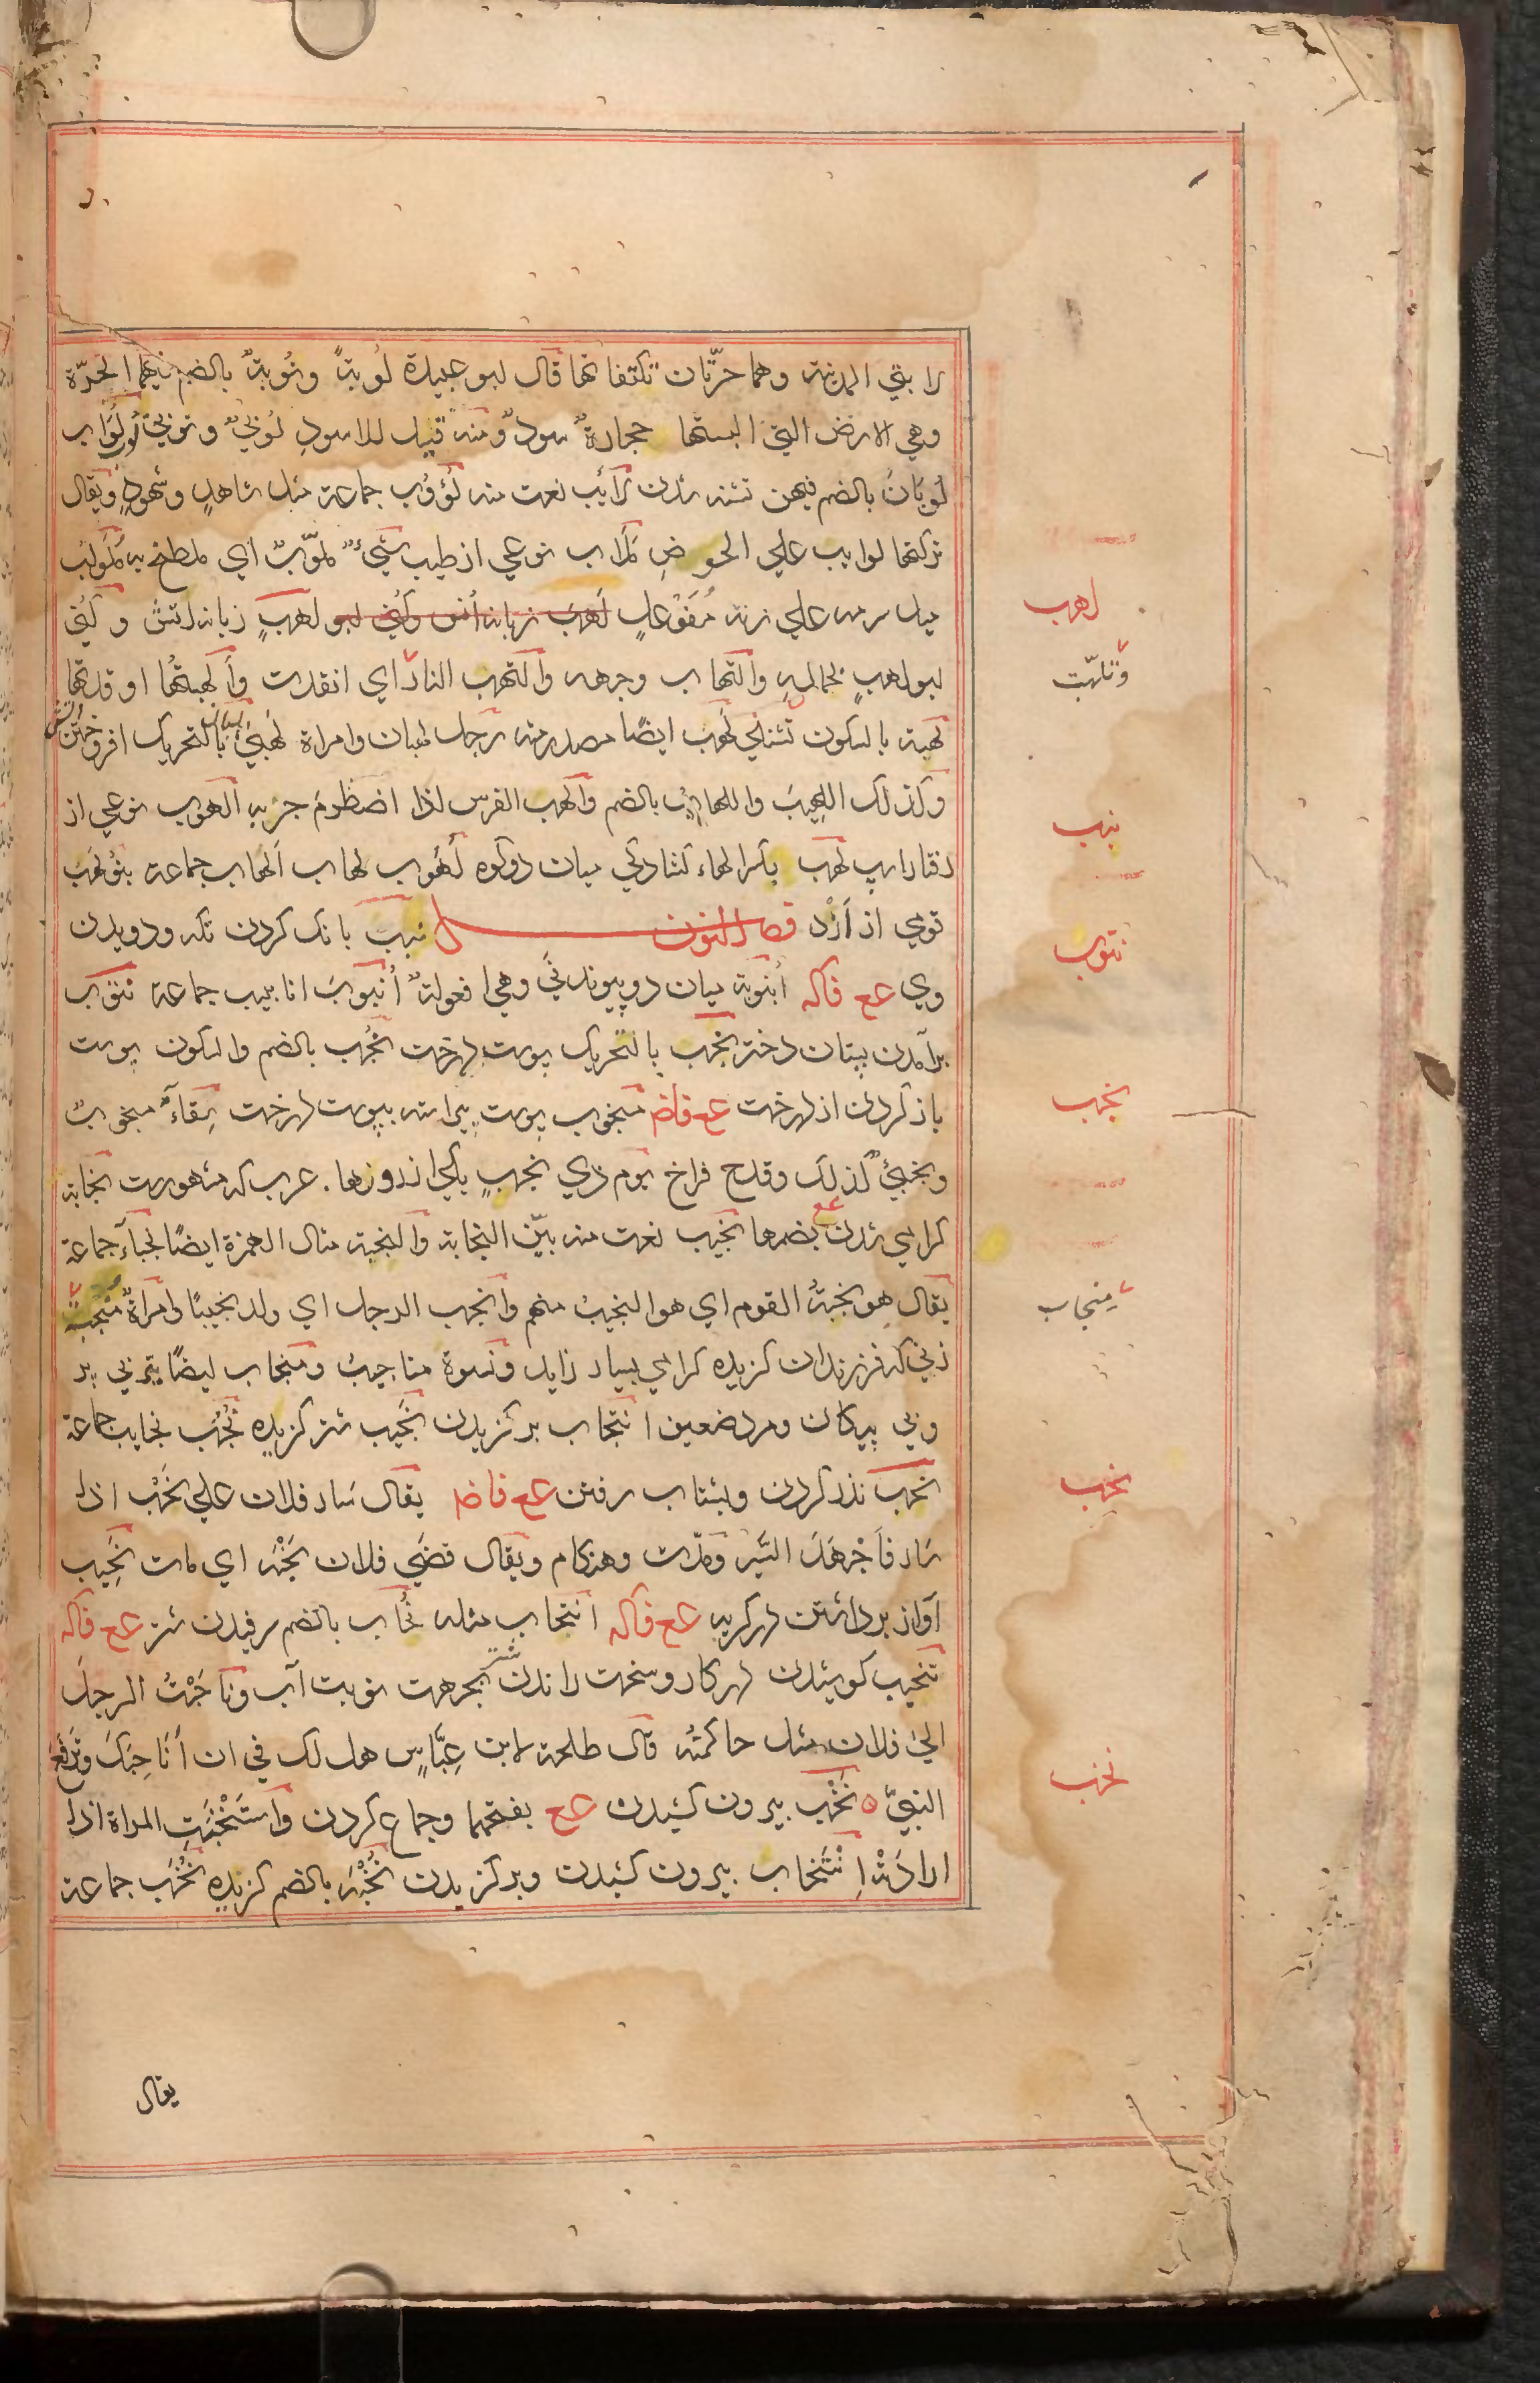 لا بتي المدينة وهما حرّتان تكتنفانها قال ابو عبيدة لُوبةٌ ونُوبةٌ بالضم فيهما الحرّة
وهي الارض التي البستها حجارةٌ سودٌ ومنه قيل للاسودِ لُوبيٌ ونوبيٌ لُوب لُوَاب
لُوبانٌ بالضم فيهن تشنه شدن لَايَب نعت منه لُؤُوب جماعة مثل شاهدٍ وشهودٍ ويقال
تركتها لوايب علي الحوضِ مَلاب نوعي از طيب شيءٌ ملوّبٌ اي ملطخ به مُلولَبٌ
ميل سرمه علي زنة مُفَوْعلٍ لَهَب زبانه اتش وكُني ابو لهبٍ زبانه اتش وكُنِّي
ابو لهبٍ لجماله والتهاب وجهه والتهب النار اي اتقدت وأَلهبتُها اوقدتها
لَهبة بالسكون تشنكي لَهَب ايضًا مصدر منه رجل لهبان وامراة لَهْبَى لهبان بالتحريك افروختن اتش
وكذلك اللهيبَ واللهابُ بالضم والهب الفرس اذا اضطرم جريه الهوب نوعي از
رفتار اسپ لِهب بكسر الهاء كشادكي ميان دو كوه لُهُوب لهاب اَلهاب جماعة بنو لِهْب
قومي از اَزْد فصل النون نبيب بانك كردن تكه ودويدن
وي عع فاكه أُنبوبة ميان دو پيوند ني وهي افعولةٌ أُنبوبَ انابيب جماعة نتوب
برآمدن پستان دختر نجب بالتحريك پوست درخت نَجْب بالضم والسكون پوست
باز كردن از درخت عع فاضم منجوب پوست پيراسته بپوست درخت سِقاءٌ منجوبٌ
ونجبيٌ كذلك وقدح فراخ يوم ذي نجبٍ يكي از روزها. عرب كه مشهورست نجابة
كرامي شدن عع بضمها نجيب نعت منه بيّن النجابة والنجبة مثال الهمزة ايضًا نجباءُ جماعة
يقال هو نُجَبَةُ القوم اي هو النجيبُ منهم وانجب الرجل اي ولد نجيبًا وامراةٌ مُنْجِبةٌ
زني كه فرزندان كزيده كرامي بسيار زايد ونسوة مناجيبُ ومنجاب ايضًا تيري بي پر
وبي پيكان ومرد ضعيف انتجاب بركزيدن نجيب شتر كزيده نُجُب نجايب جماعة
نحب نذر كردن وبشتاب رفتن عع فاضم يقال سَار فلان علي نَحْب اذا
سَار فأجْهَدَ السَّير ومدّت وهنكام ويقال قضَي فلان نَحْبَه اي مات نَحِيب
آواز برداشتن در كريه عع فاكه انتحاب مثله نُحَاب بالضم سرفيدن شتر عع فاكه
تنحيب كوشيدن در كار وسخت راندن شتر بجهت نوبت آب وناحَبْتُ الرجل
الي فلان مثل حاكمته قال طلحة لابن عبّاسٍ هل لك في ان أُنَاحِبَكَ وتَرفَعَ
النبيَّ ٥ نَخْب بيرون كشيدن عع بفتحها وجماع كردن واستَنْخَبَتِ المراة اذا
ارادَتْه اِنْتَخاب بيرون كشيدن وبركزيدن نُخْبَه بالضم كزيده نُخَب جماعة
لهب
وتلهّبت
نبب
نتوب
نجب
منجاب
نحب
نخب
يقال